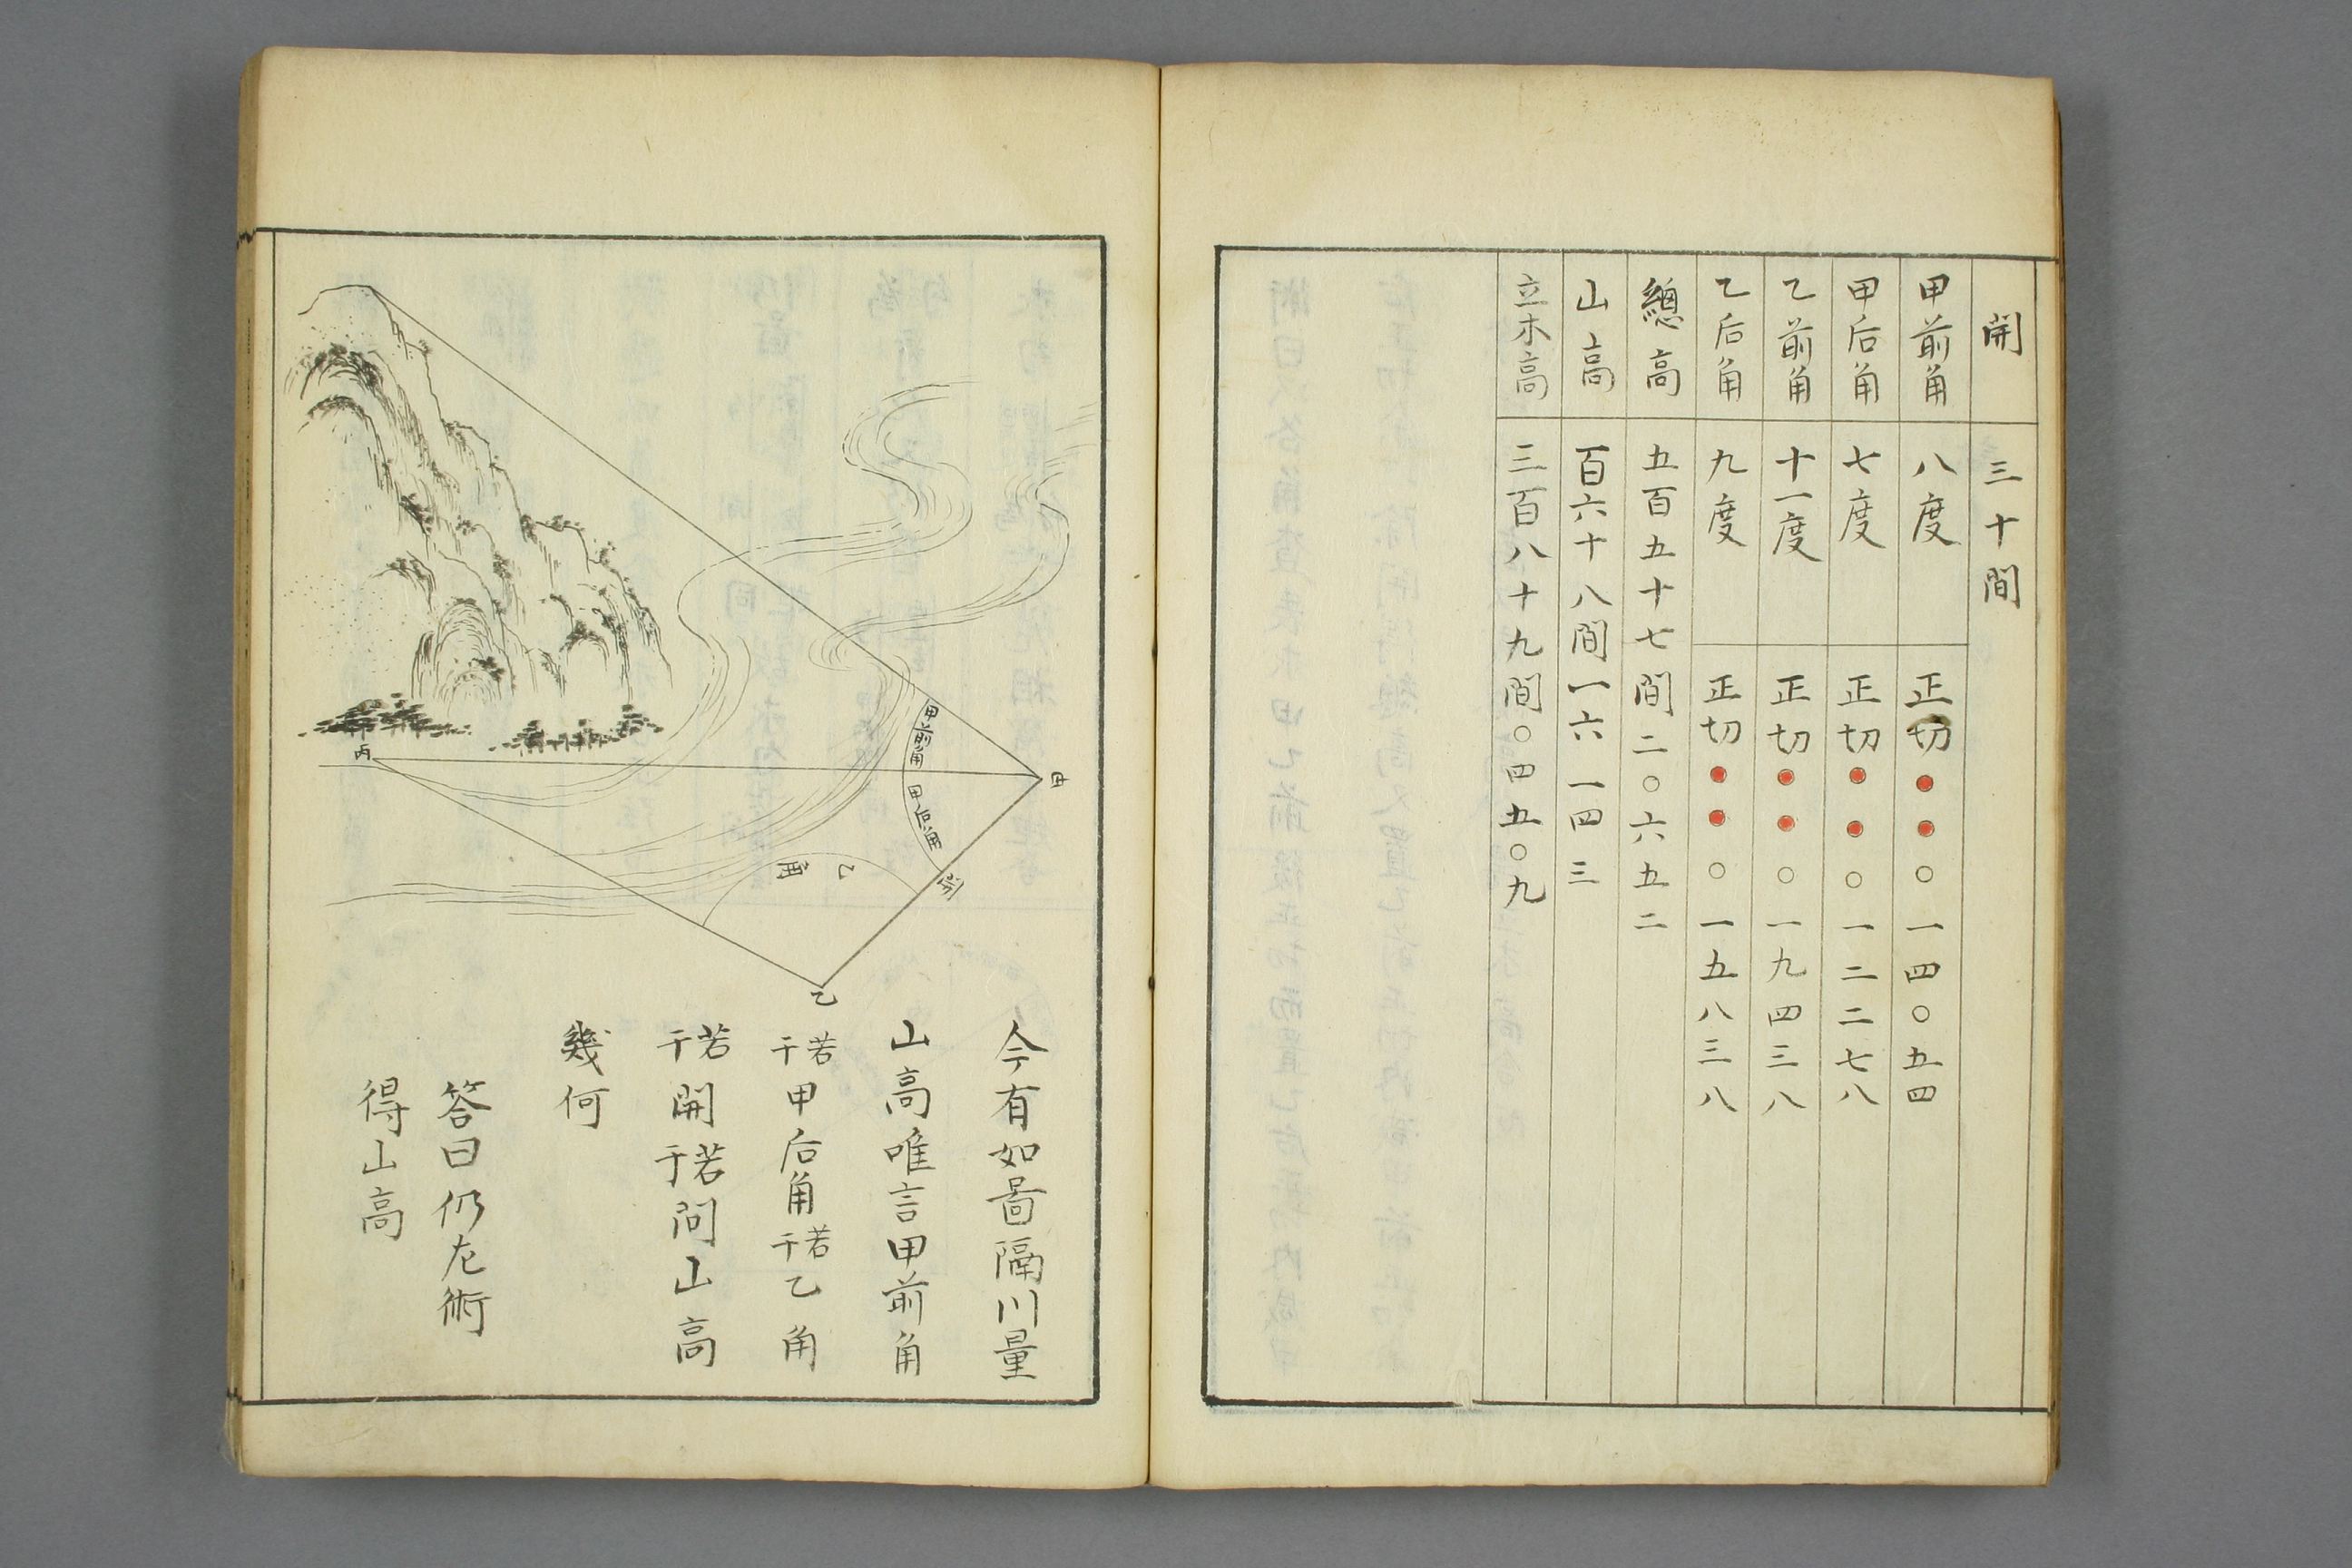 開 三十間
甲前角 八度 正切●●○一四○五四
甲后角 七度 正切●●○一二二七八
乙前角 十一度 正切●●○一九四三八
乙后角 九度 正切●●○一五八三八
總高 五百五十七間二○六五二
山高 百六十八間一六一四三
立木高 三百八十九間○四五○九
甲
甲前角
甲后角
開
乙
角
乙
丙
今有如啚隔川量
山高唯言甲前角
若干甲后角若干乙角
若干開若干問山高
幾何
答曰仍左術
得山高